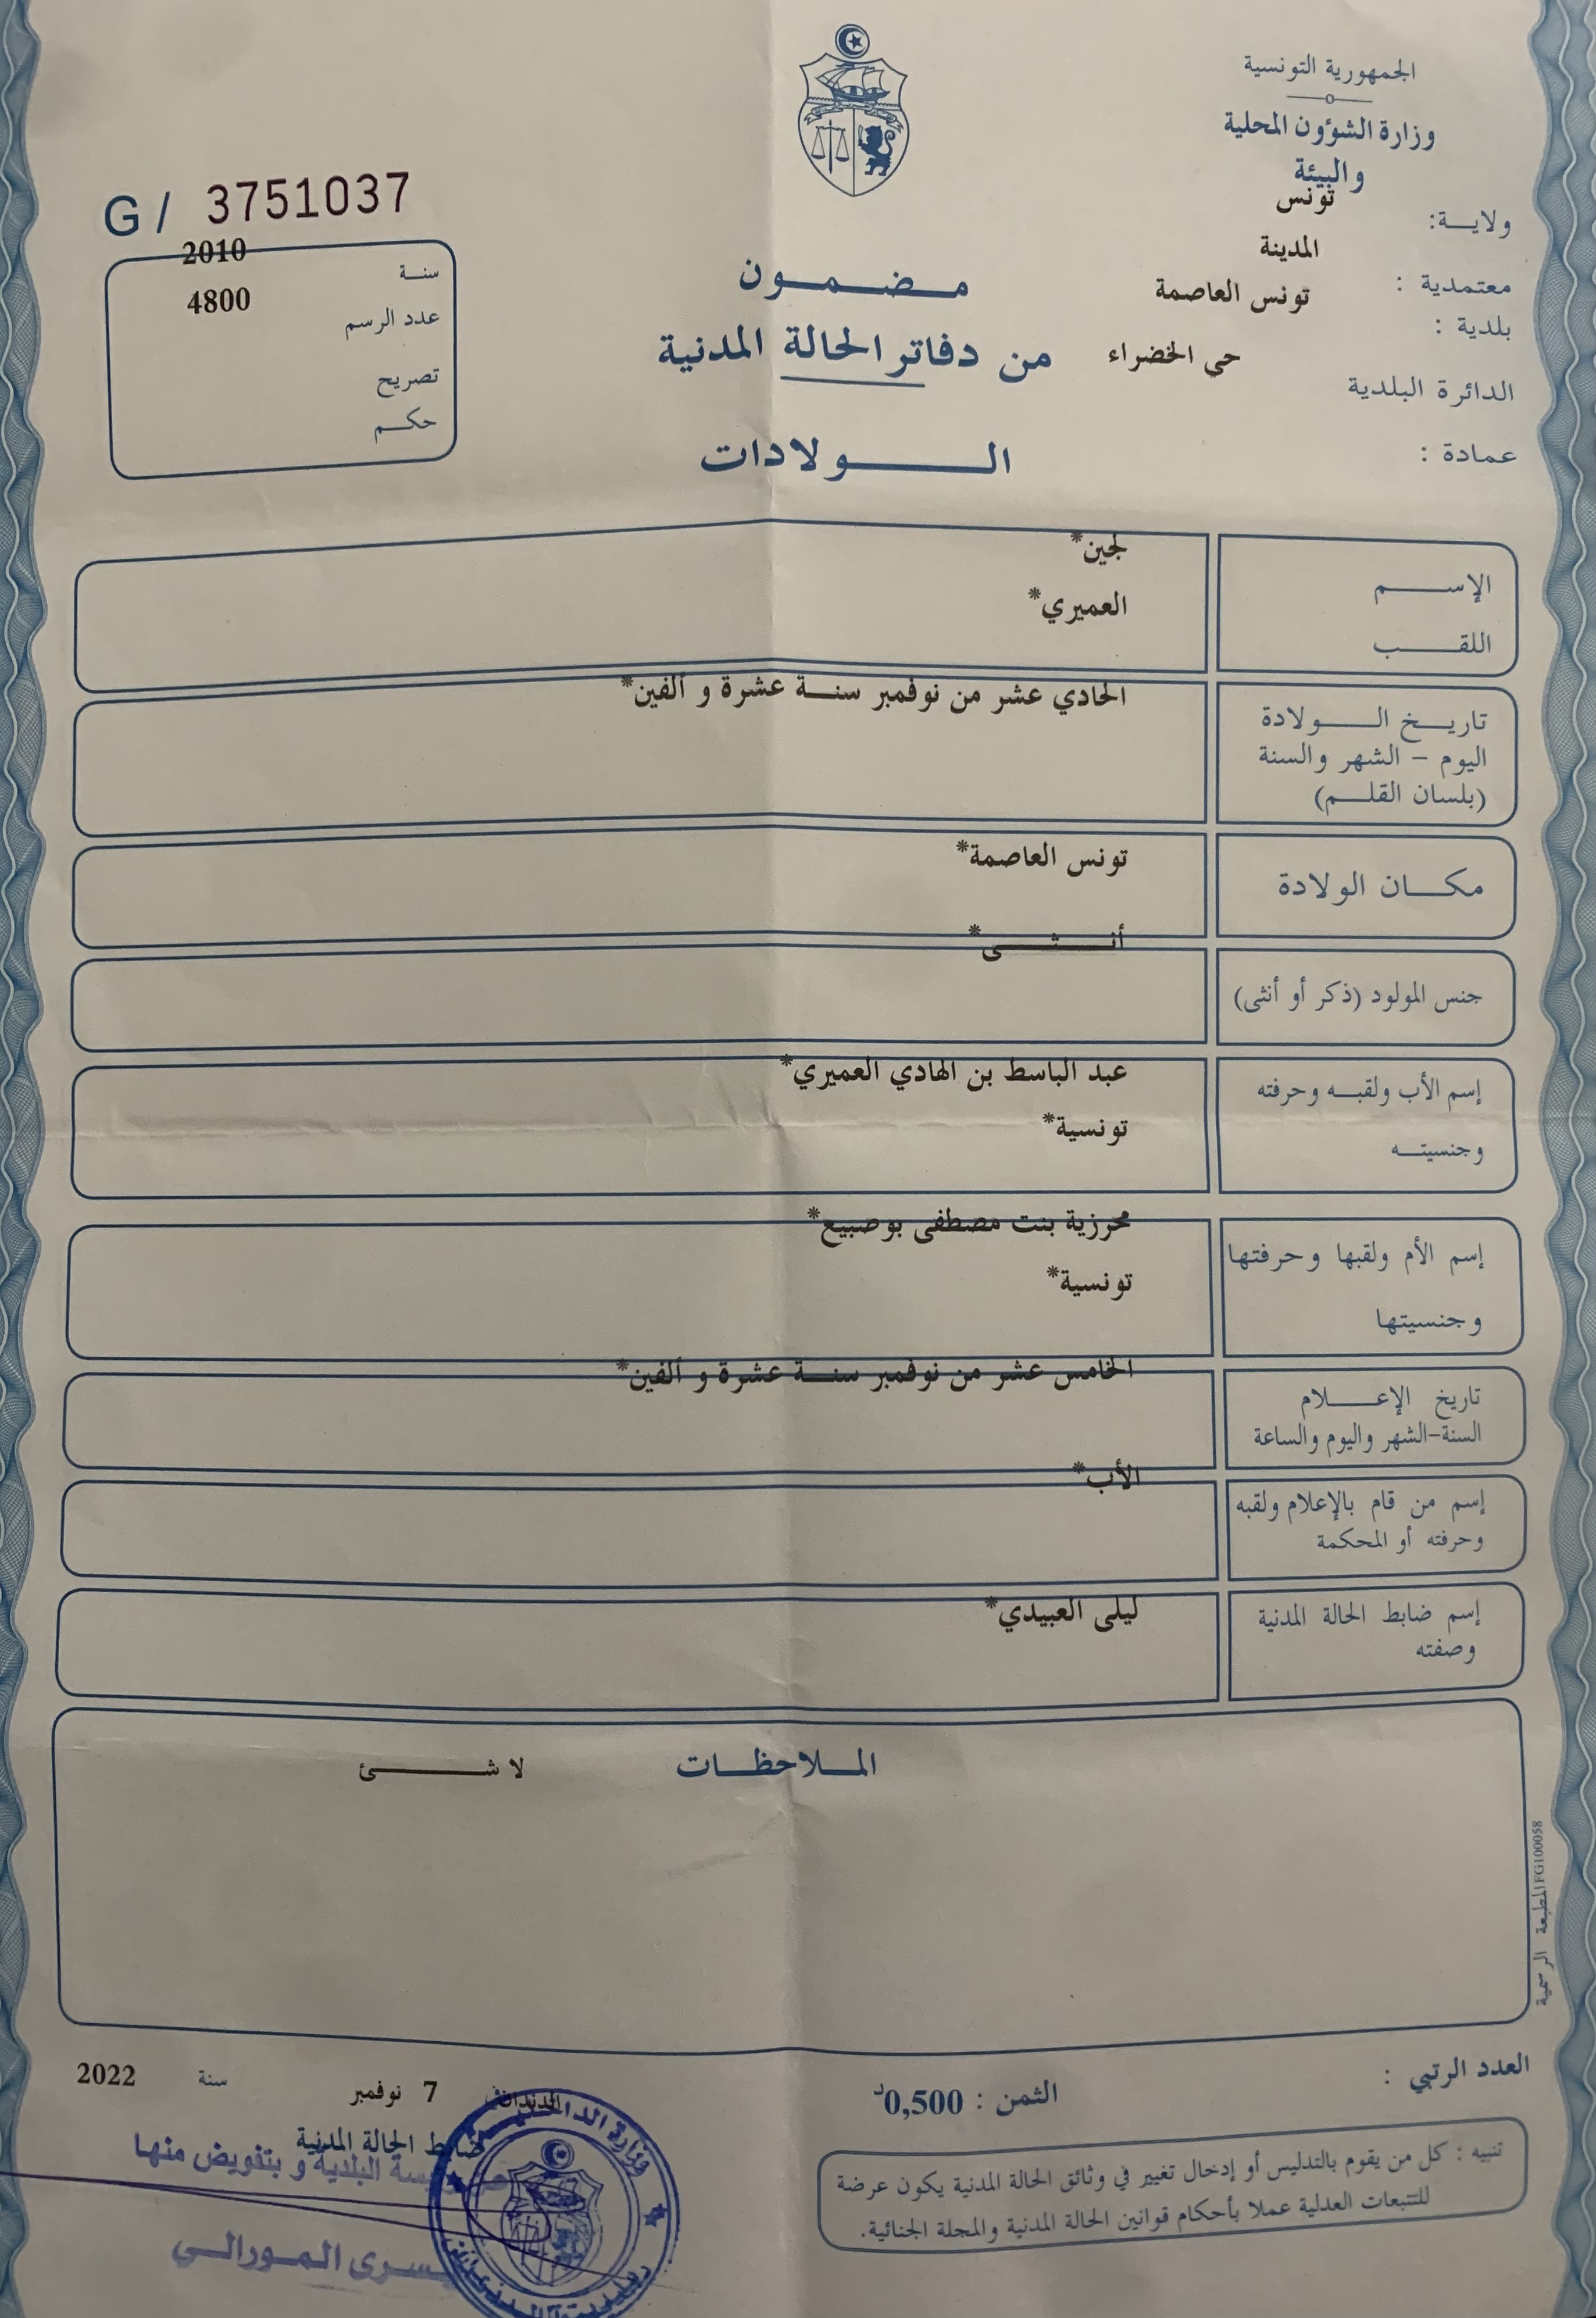 الجمهورية التونسية
وزارة الشؤون المحلية
والبيئة
ولايـــة: تونس
معتمدية : المدينة
بلدية : تونس العاصمة
الدائرة البلدية حي الخضراء
عمادة :
مـضـمـــون
من دفاتر الحالة المدنية
الـــــــولادات
G/ 3751037
سنـــة 2010
عدد الرسم 4800
تصريح
حكـــم
الإســـــم لجين*
اللقـــــب العميري*
تاريـــخ الـــــولادة الحادي عشر من نوفمبر سنـــة عشرة و ألفين*
اليوم – الشهر والسنة
(بلسان القلـــم)
مكـــان الولادة تونس العاصمة*
جنس المولود (ذكر أو أنثى) أنـــــثـــــى*
إسم الأب ولقبـــه وحرفته عبد الباسط بن الهادي العميري*
وجنسيتـــه تونسية*
إسم الأم ولقبها وحرفتها محرزية بنت مصطفى بوصبيع*
وجنسيتها تونسية*
تاريخ الإعـــــلام الخامس عشر من نوفمبر سنـــة عشرة و ألفين*
السنة-الشهر واليوم والساعة
إسم من قام بالإعلام ولقبه الأب*
وحرفته أو المحكمة
إسم ضابط الحالة المدنية ليلى العبيدي*
وصفته
المـــلاحظـــات لا شـــــــئ
المطبعة الرسمية FG100058
العدد الرتبي :
الثمن : 0,500د
7 نوفمبر سنة 2022
ضابط الحالة المدنية
البلدية و بتفويض منها
يسرى المورالي
وزارة الداخلية
تنبيه : كل من يقوم بالتدليس أو إدخال تغيير في وثائق الحالة المدنية يكون عرضة
للتتبعات العدلية عملا بأحكام قوانين الحالة المدنية والمجلة الجنائية.